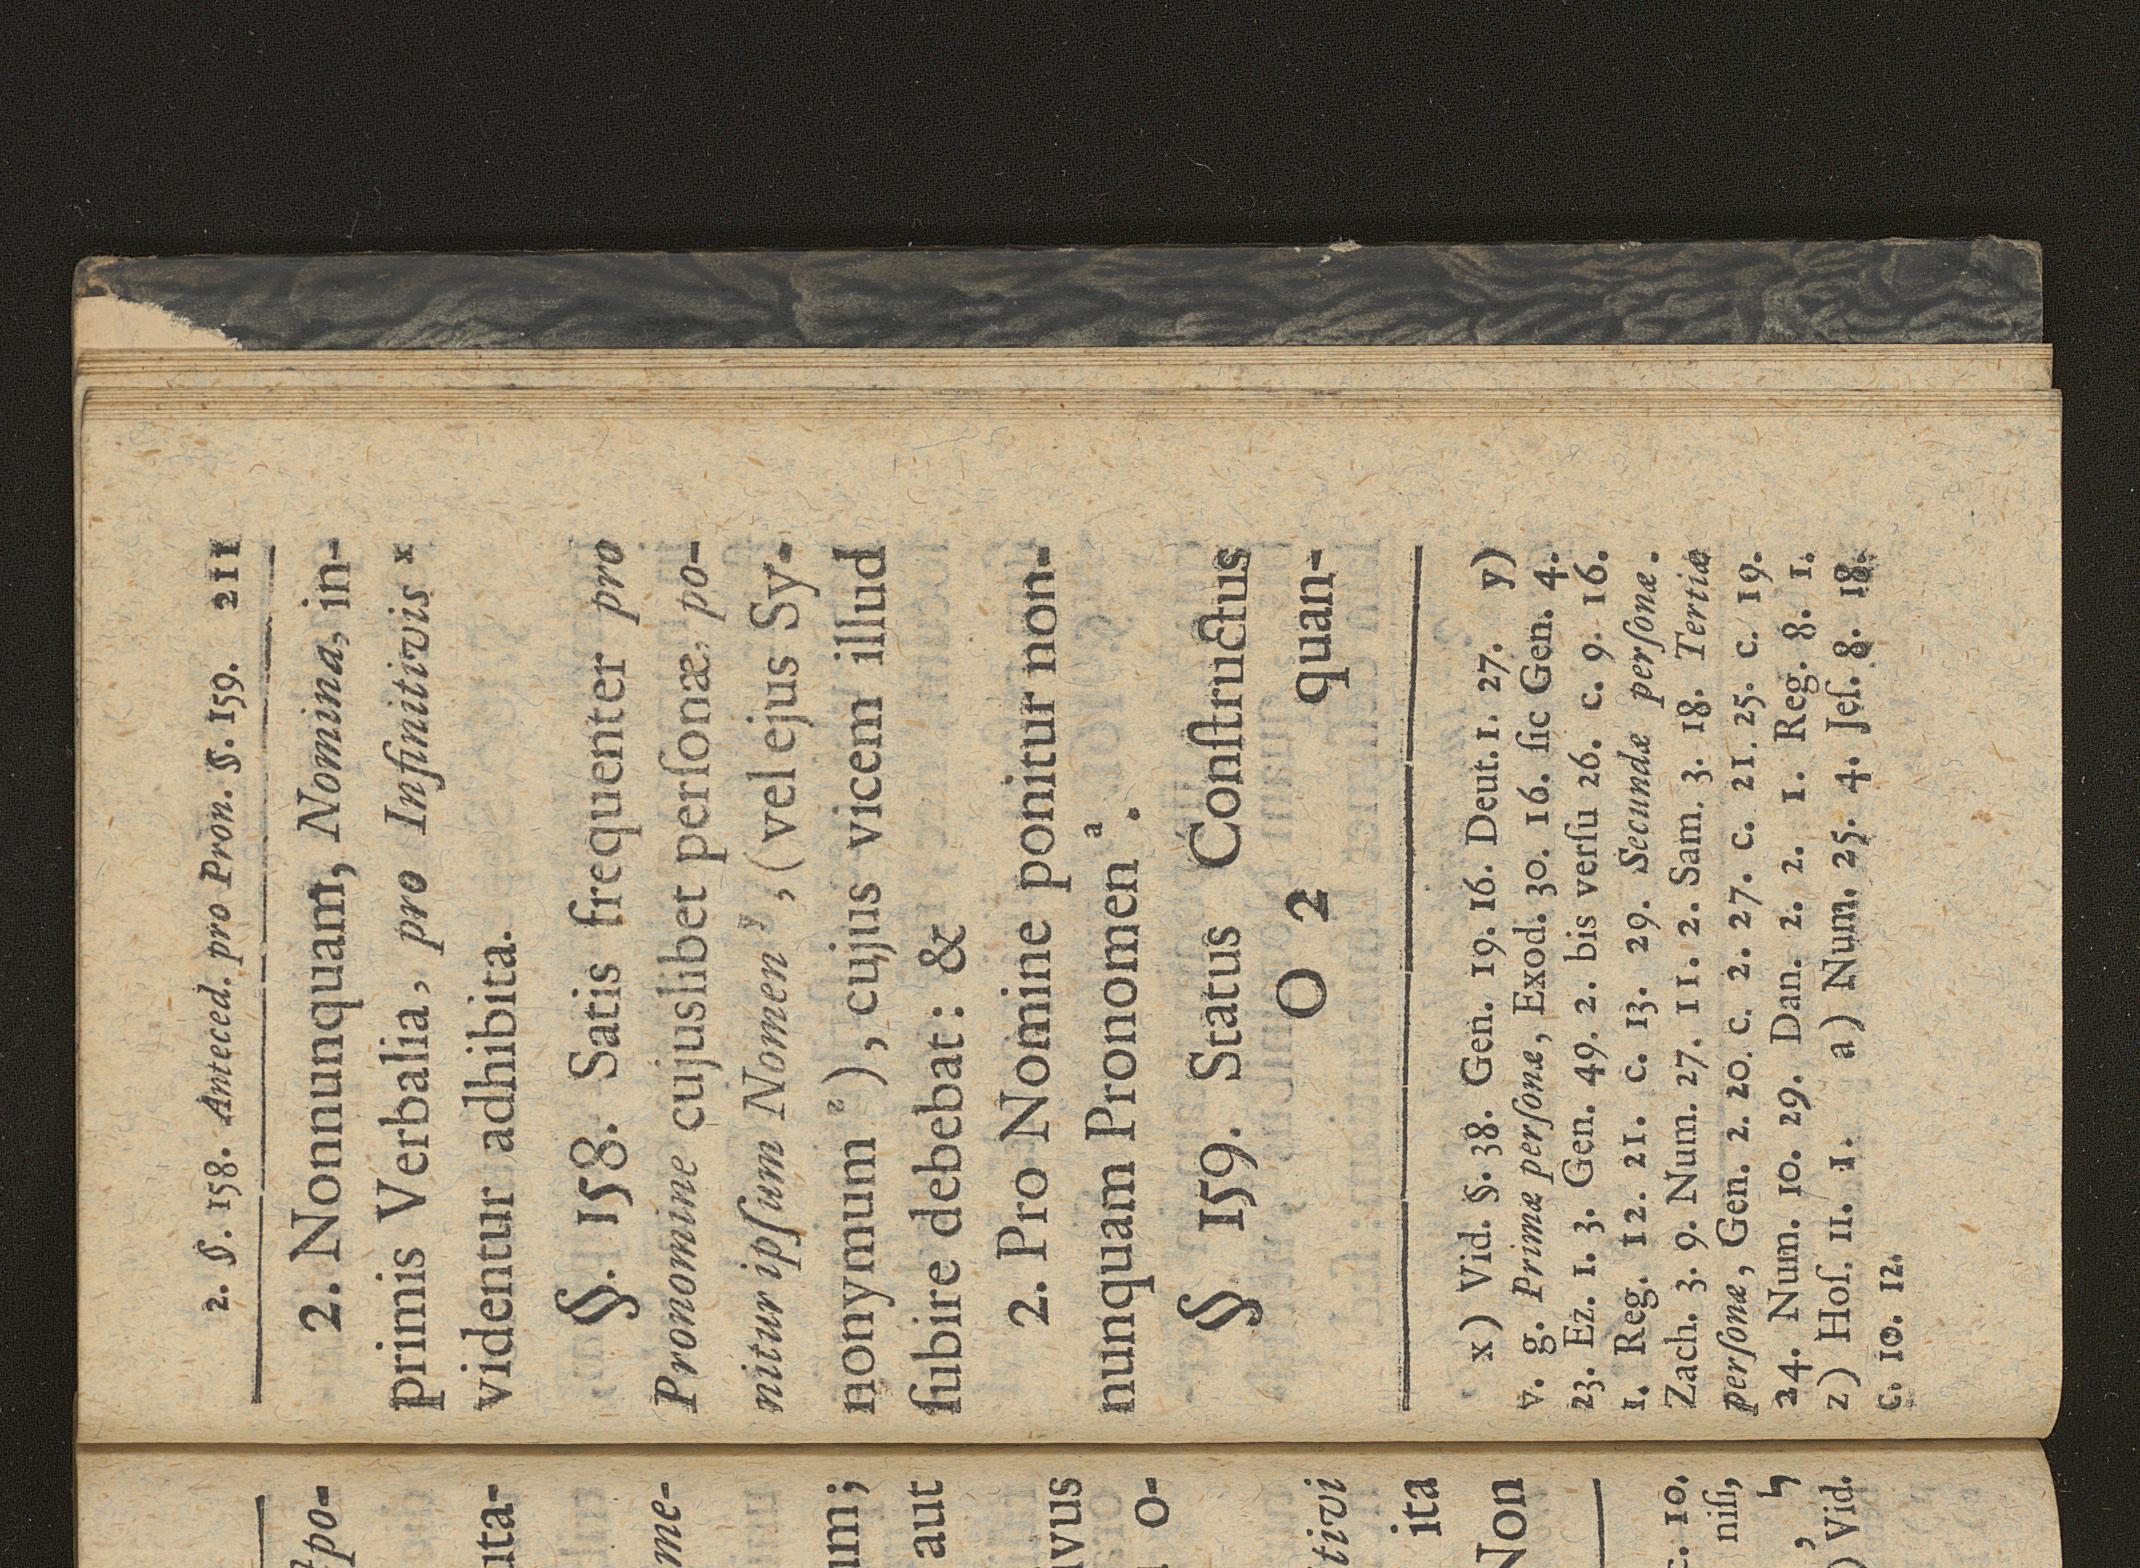 2. §. 158. Anteced. pro Pron. §. 159. 211
2. Nonnunquam, Nomina, in-
primis Verbalia, pro Infinitivis x
videntur adhibita.
§. 158. Satis frequenter pro
Pronomine cujuslibet perſonæ, po-
nitur ipſum Nomen y, (vel ejus Sy-
nonymum z), cujus vicem illud
ſubire debebat: &
2. Pro Nomine ponitur non-
nunquam Pronomen a.
§. 159. Status Conſtructus
O 2 quan-
x) Vid. §. 38. Gen. 19. 16. Deut. 1. 27. y)
v. g. Primæ perſonæ, Exod. 30. 16. ſic Gen. 4.
23. Ez. 1. 3. Gen. 49. 2. bis verſu 26. c. 9. 16.
1. Reg. 12. 21. c. 13. 29. Secundæ perſonæ.
Zach. 3. 9. Num. 27. 11. 2. Sam. 3. 18. Tertiæ
perſonæ, Gen. 2. 20. c. 2. 27. c. 21. 25. c. 19.
24. Num. 10. 29. Dan. 2. 2. 1. Reg. 8. 1.
z) Hoſ. 11. 1. a) Num. 25. 4. Jeſ. 8. 18.
c. 10. 12.
po-
uta-
me-
um;
aut
ivus
o-
tivi
ita
Non
c. 10.
niſi,
) Vid.